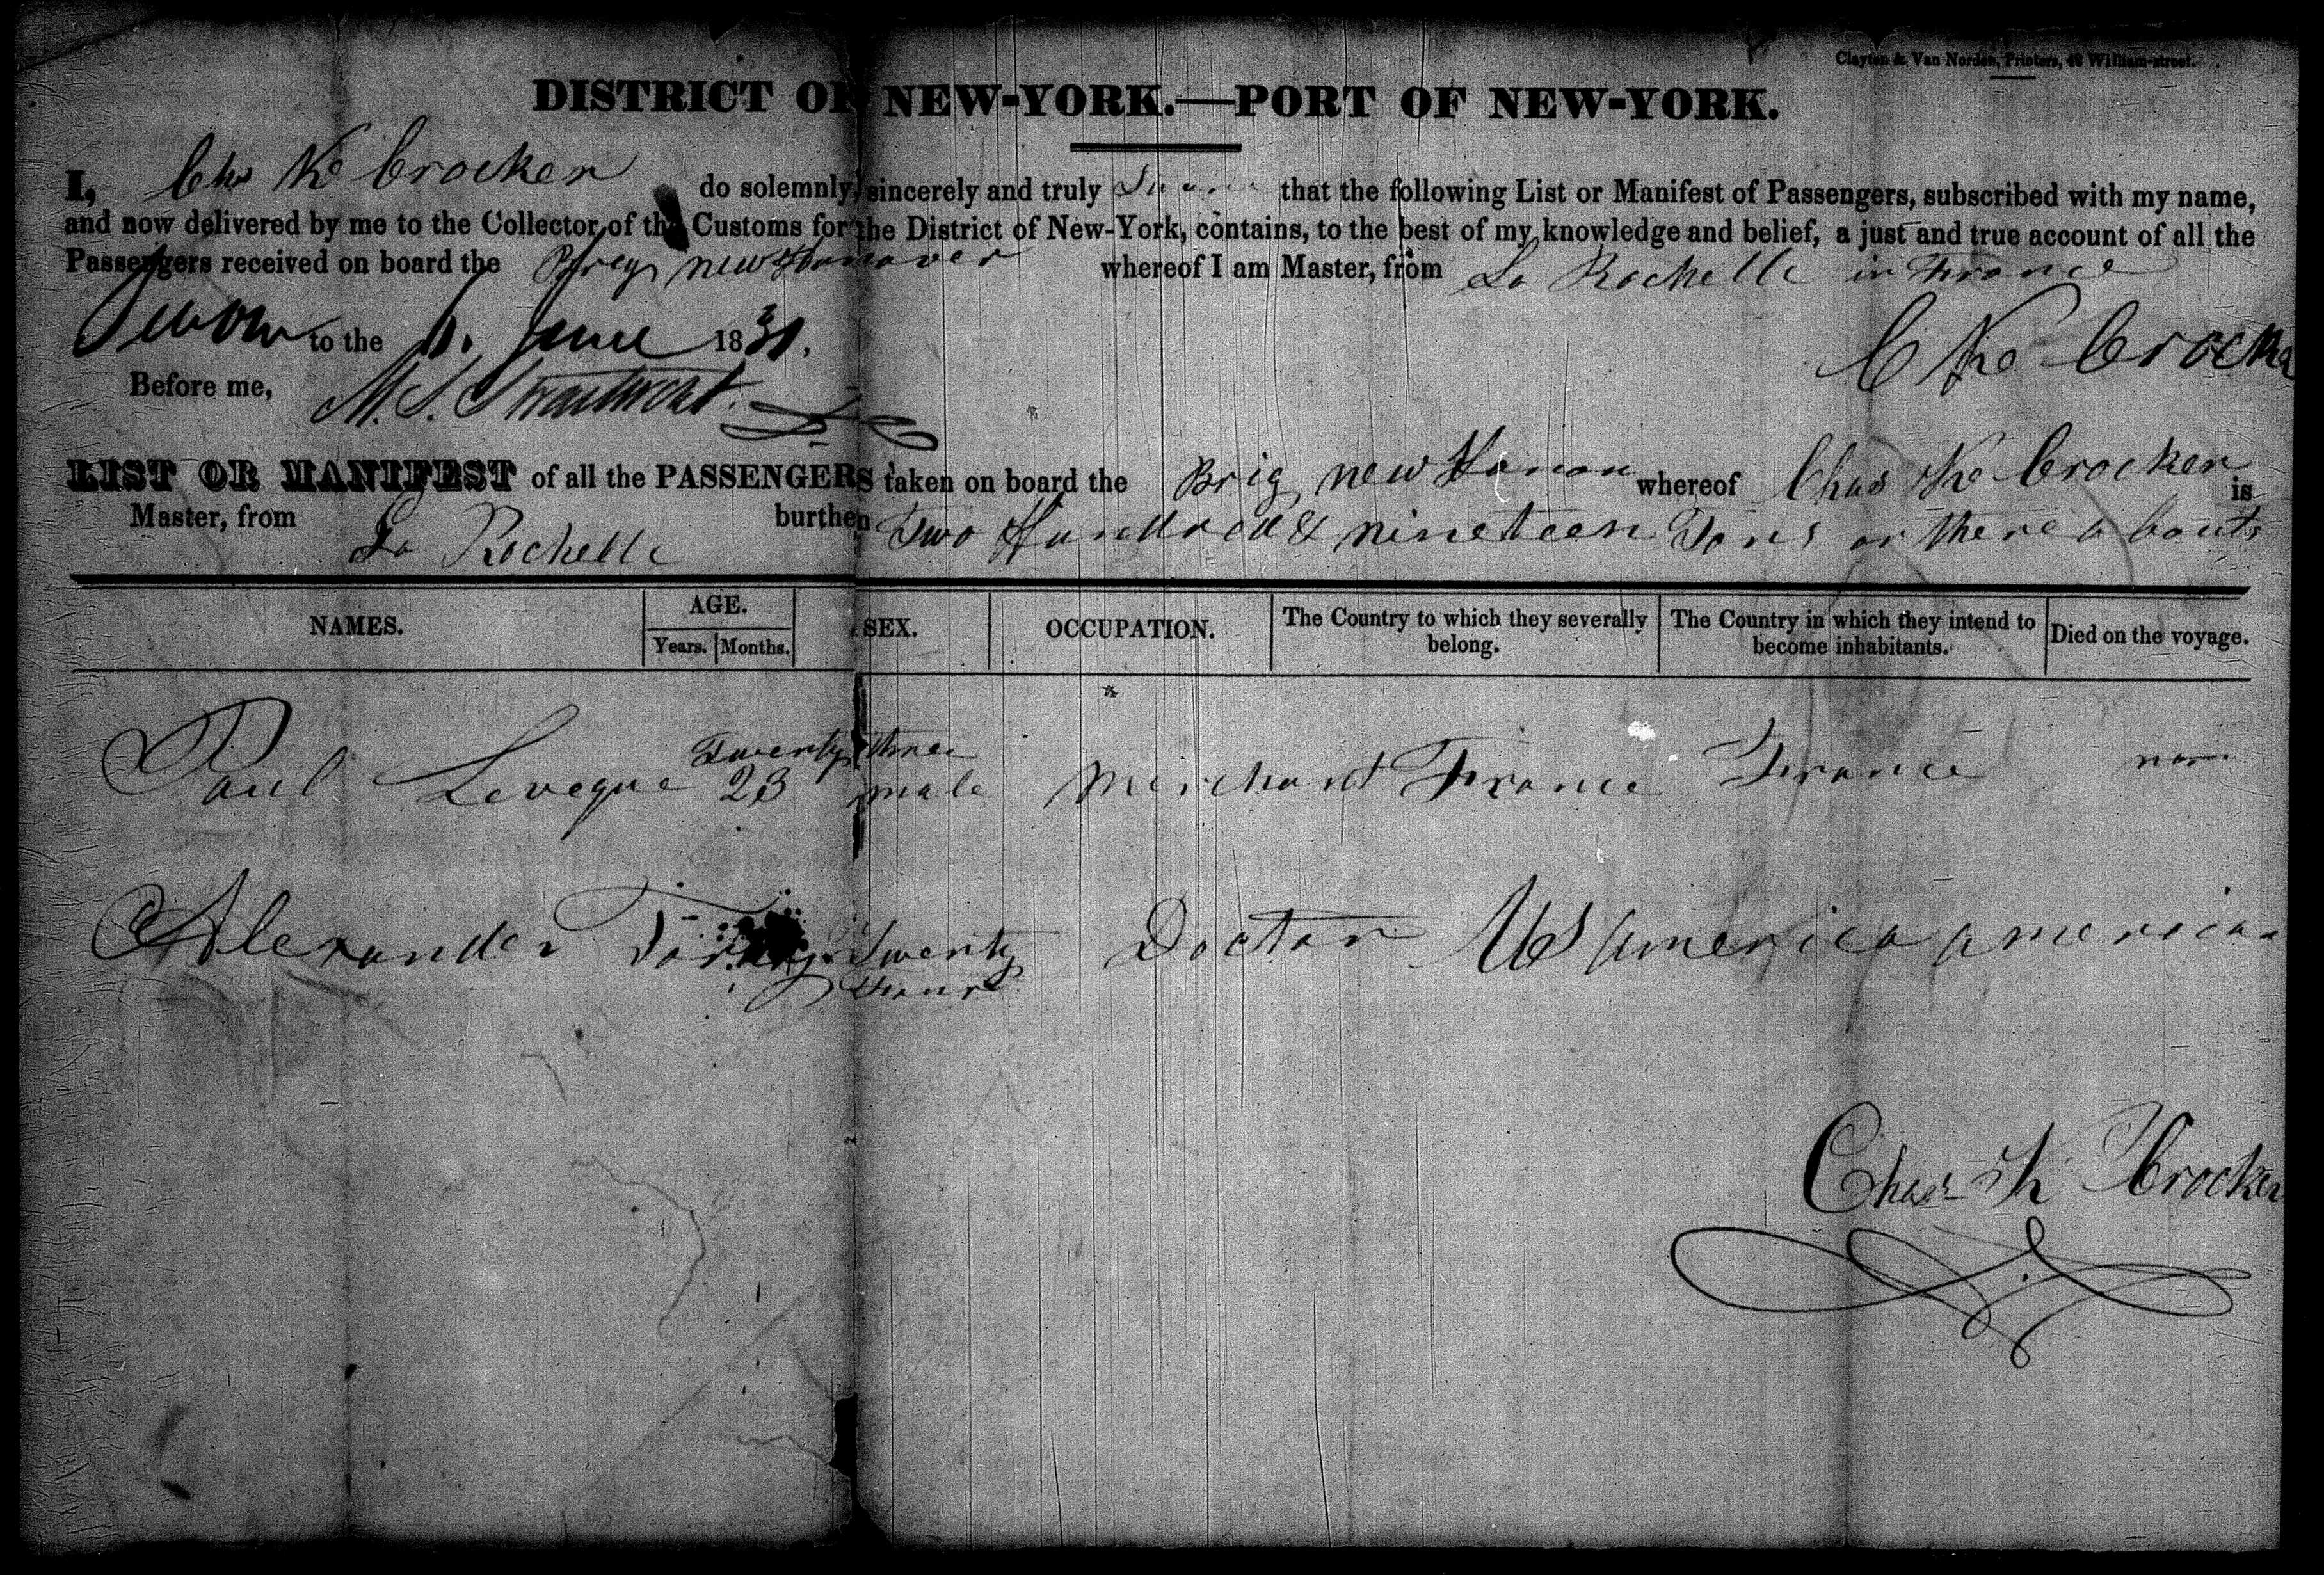 Clayton & Van Norden, Printers, 42 William-street.
DISTRICT OF NEW-YORK.—PORT OF NEW-YORK.
I, Chs K Crocker do solemnly, sincerely and truly Swear that the following List or Manifest of Passengers, subscribed with my name,
and now delivered by me to the Collector of the Customs for the District of New-York, contains, to the best of my knowledge and belief, a just and true account of all the
Passengers received on board the Brig new Hanover whereof I am Master, from La Rochelle in France
Sworn to the 11. June 1831,
C K Crocker
Before me, M. S.
LIST OR MANIFEST of all the PASSENGERS taken on board the Brig new Hanover whereof Chas K Crocker is
Master, from La Rochelle burthen Two Hundred & nineteen Tons or thereabouts
NAMES. AGE. SEX. OCCUPATION. The Country to which they severally belong. The Country in which they intend to become inhabitants. Died on the voyage.
Years. Months.
Twenty three
Paul Leveque 23 male Merchant France France none
Alexander Twenty Doctor US America america
Four
Chas K Crocker